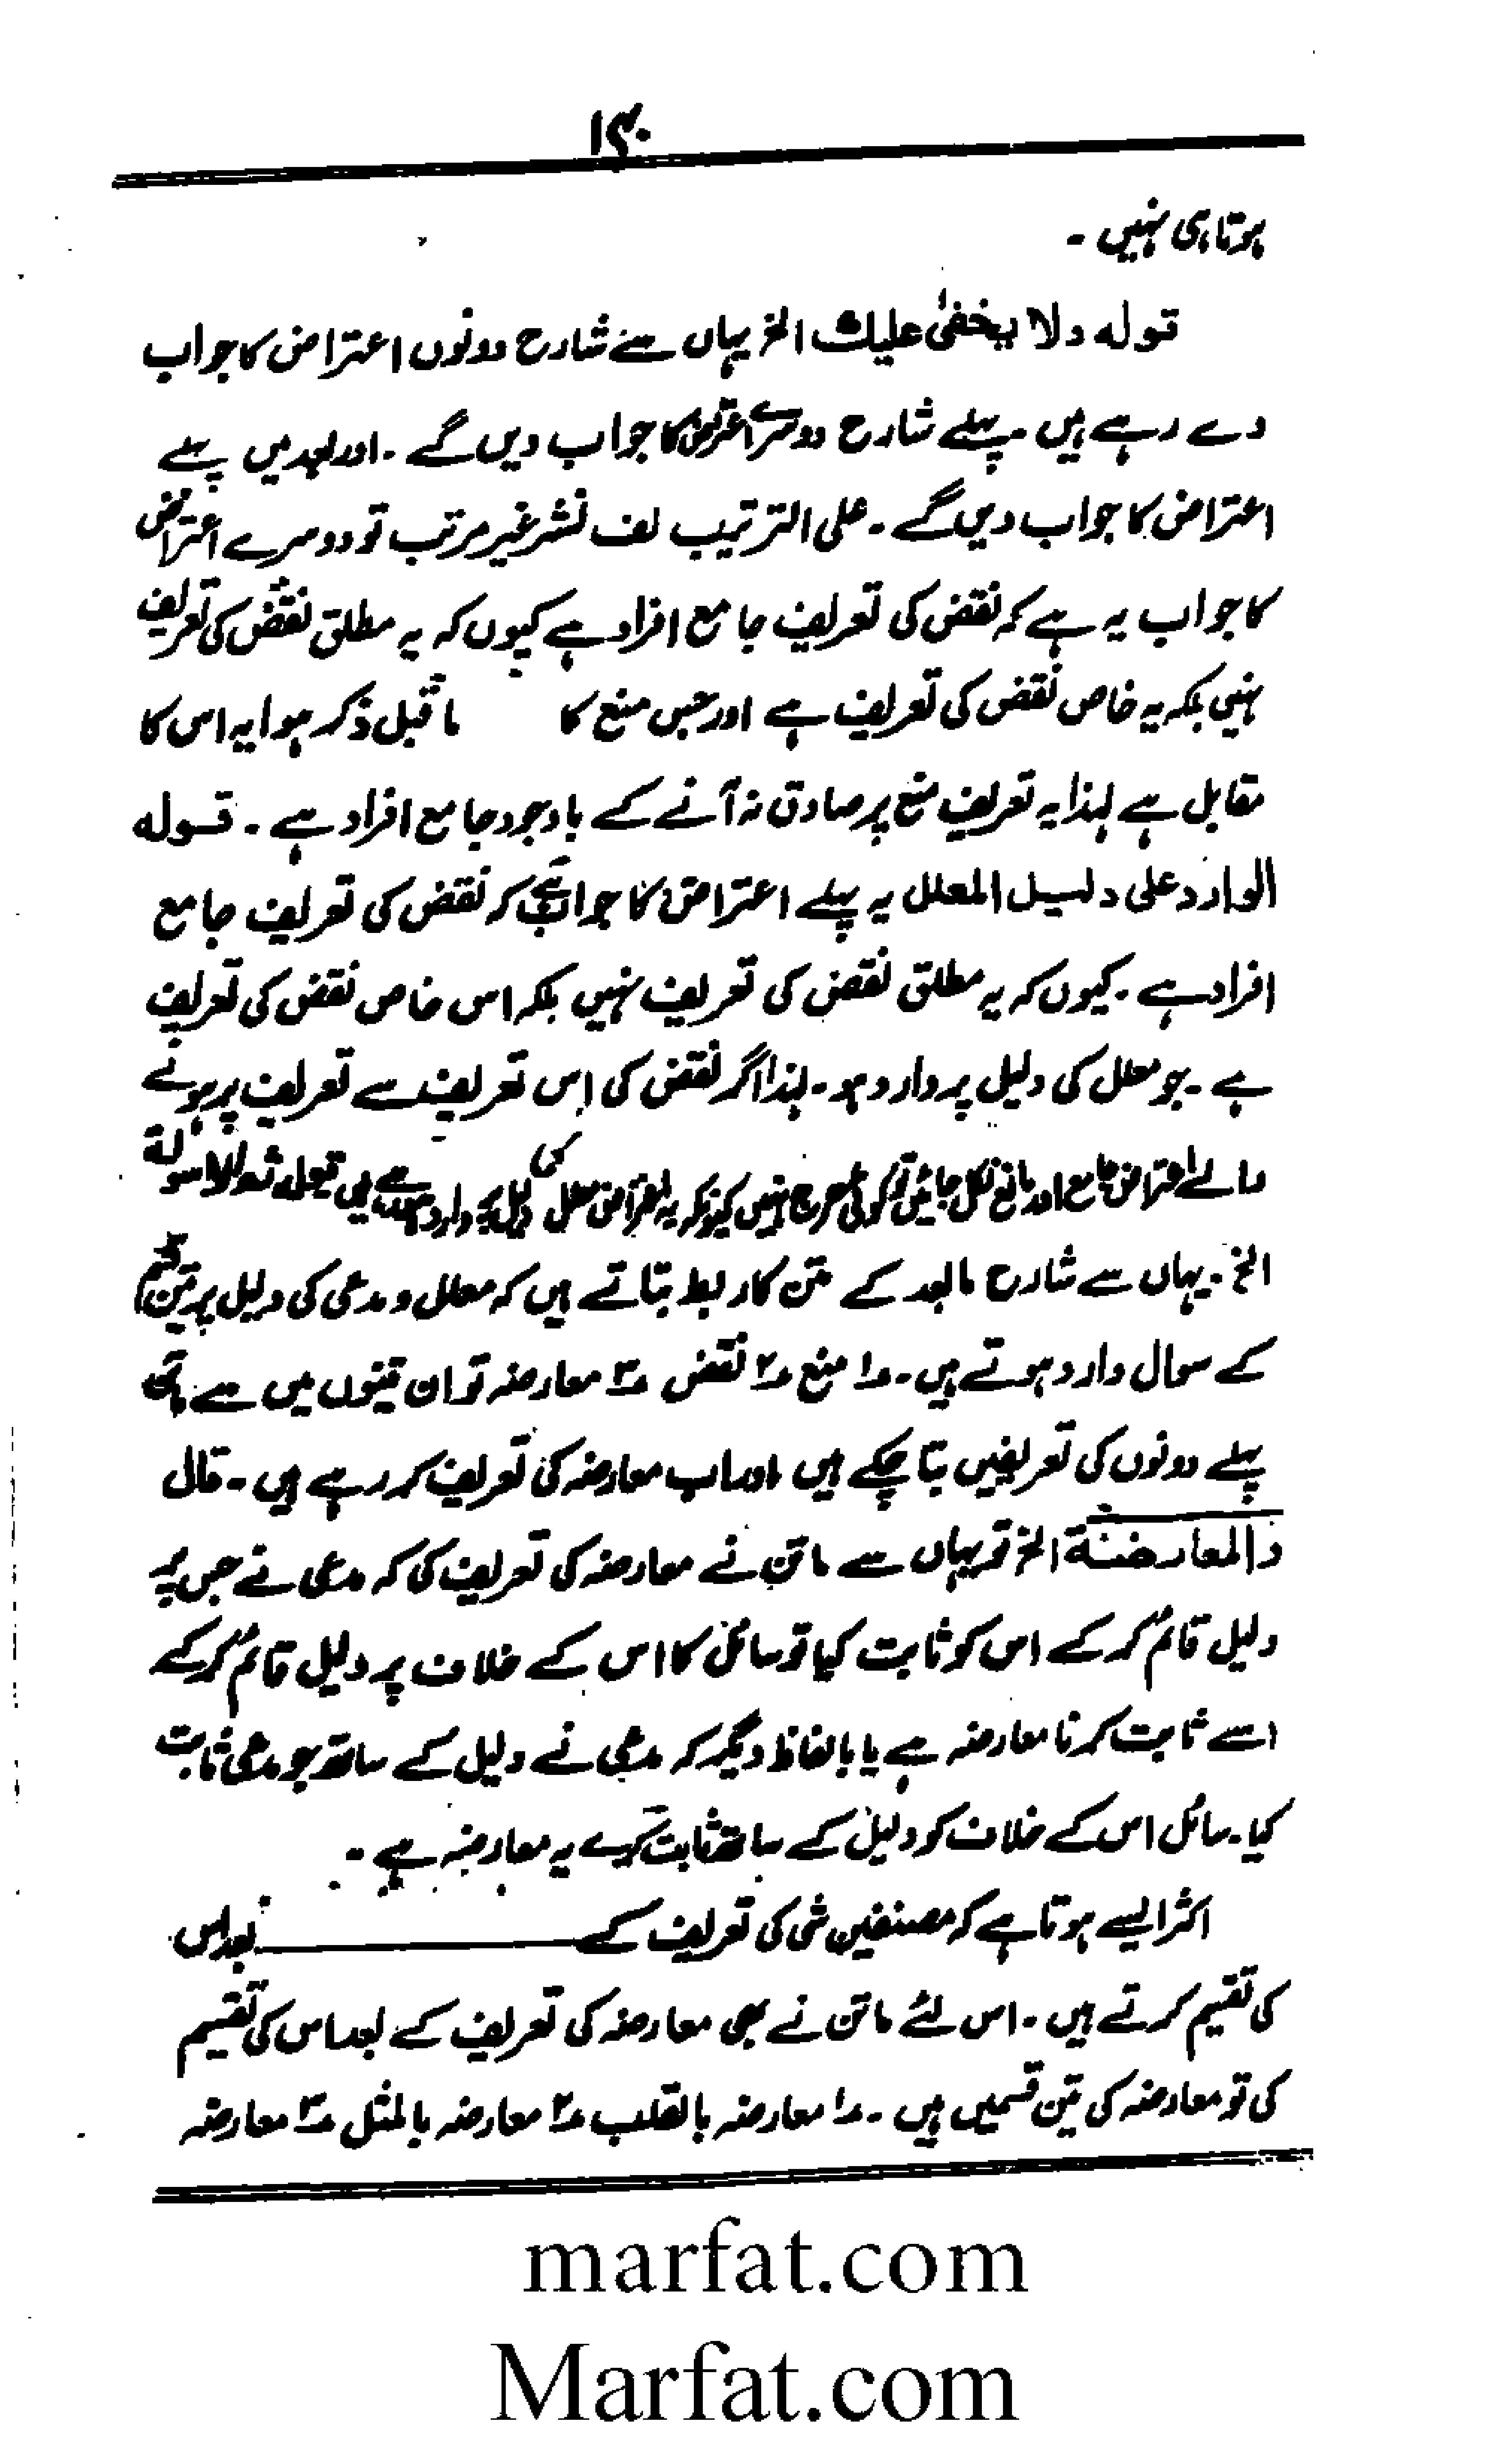 ۱۴۰
ہوتا ہی نہیں ۔
قولہ ولا یخفیٰ علیك الخ یہاں سے شارح دونوں اعتراض کا جواب
دے رہے ہیں ۔ پہلے شارح دوسرے اعتراض کا جواب دیں گے ۔ اور بعد میں پہلے
اعتراض کا جواب دیں گے ۔ علی الترتیب لف نشر غیر مرتب تو دوسرے اعتراض
کا جواب یہ ہے کہ نقض کی تعریف جامع افراد ہے کیوں کہ یہ مطلق نقض کی تعریف
نہیں بلکہ یہ خاص نقض کی تعریف ہے اور جس منع کا ماقبل ذکر ہوا یہ اس کا
مقابل ہے لہذا یہ تعریف منع پر صادق نہ آنے کے باوجود جامع افراد ہے ۔ قولہ
الوارد علی دلیل المعلل یہ پہلے اعتراض کا جواب ہے کہ نقض کی تعریف جامع
افراد ہے ۔ کیوں کہ یہ مطلق نقض کی تعریف نہیں بلکہ اس خاص نقض کی تعریف
ہے ۔ جو معلل کی دلیل پر وارد ہو ۔ لہذا اگر نقض کی اس تعریف سے تعریف پر ہونے
والے اعتراض جامع اور مانع نکل جائیں تو کوئی حرج نہیں کیونکہ یہ اعتراض معلل کی دلیل پر وارد ہیں قولہ
الخ ۔ یہاں سے شارح مابعد کے متن کا ربط بتاتے ہیں کہ معلل و مدعی کی دلیل پر تین قسم
کے سوال وارد ہوتے ہیں ۔ ۱ منع ۲ نقض ۳ معارضہ تو ان تینوں میں سے ماتن
پہلے دونوں کی تعریفیں بتا چکے ہیں اور اب معارضہ کی تعریف کر رہے ہیں ۔ قال
والمعارضة الخ تو یہاں سے ماتن نے معارضہ کی تعریف کی کہ مدعی نے جس پر
دلیل قائم کر کے اس کو ثابت کیا تو سائل کا اس کے خلاف پر دلیل قائم کر کے
اسے ثابت کرنا معارضہ ہے یا بالفاظ دیگر کہ مدعی نے دلیل کے ساتھ جو مدعی ثابت
کیا ۔ سائل اس کے خلاف کو دلیل کے ساتھ ثابت کرے یہ معارضہ ہے ۔
اکثر ایسے ہوتا ہے کہ مصنفین شی کی تعریف کے بعد اس
کی تقسیم کرتے ہیں ۔ اس لئے ماتن نے بھی معارضہ کی تعریف کے بعد اس کی تقسیم
کی تو معارضہ کی تین قسمیں ہیں ۔ ۱ معارضہ بالقلب ۲ معارضہ بالمثل ۳ معارضہ
marfat.com
Marfat.com